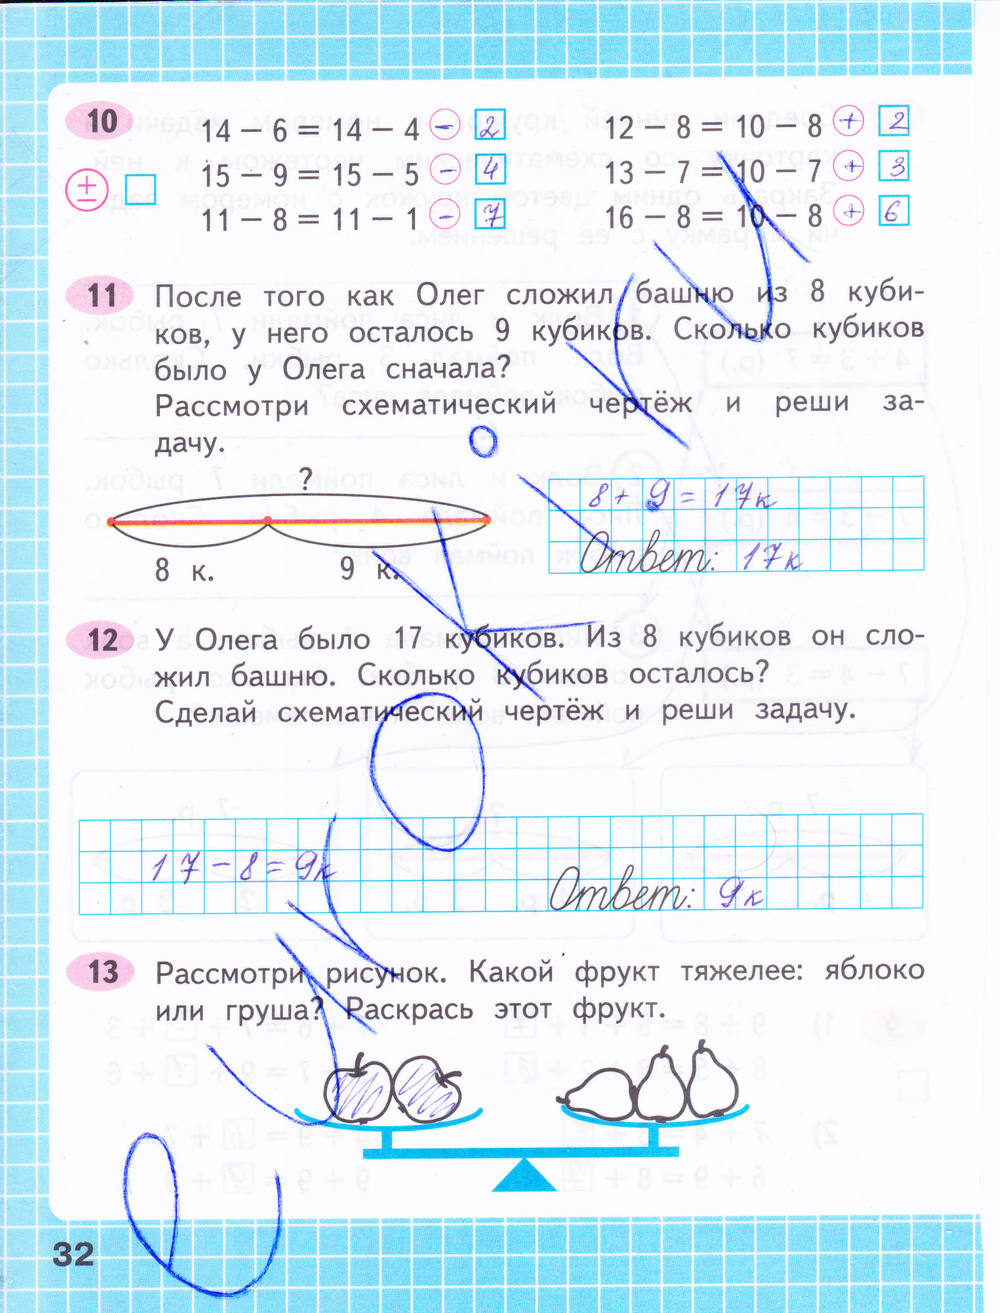 10
14 − 6 = 14 − 4 − 2
12 − 8 = 10 − 8 + 2
15 − 9 = 15 − 5 − 4
13 − 7 = 10 − 7 + 3
11 − 8 = 11 − 1 − 7
16 − 8 = 10 − 8 + 6
±
11 После того как Олег сложил башню из 8 куби-
ков, у него осталось 9 кубиков. Сколько кубиков
было у Олега сначала?
Рассмотри схематический чертёж и реши за-
дачу.
?
8 к. 9 к.
8 + 9 = 17к
Ответ: 17к
12 У Олега было 17 кубиков. Из 8 кубиков он сло-
жил башню. Сколько кубиков осталось?
Сделай схематический чертёж и реши задачу.
17 − 8 = 9к
Ответ: 9к
13 Рассмотри рисунок. Какой фрукт тяжелее: яблоко
или груша? Раскрась этот фрукт.
32